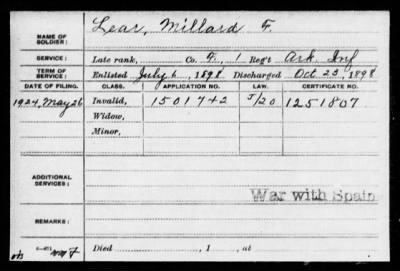 NAME OF SOLDIER: Lear, Millard F.
SERVICE: Late rank, Co. F, 1 Reg't Ark. Inf
TERM OF SERVICE: Enlisted July 6, 1898 Discharged Oct 23, 1898
DATE OF FILING. CLASS. APPLICATION NO. LAW. CERTIFICATE NO.
1924, May 26 Invalid, 1501742 J/20 1251807
Widow,
Minor,
ADDITIONAL SERVICES:
War with Spain
REMARKS:
Died , 1 , at